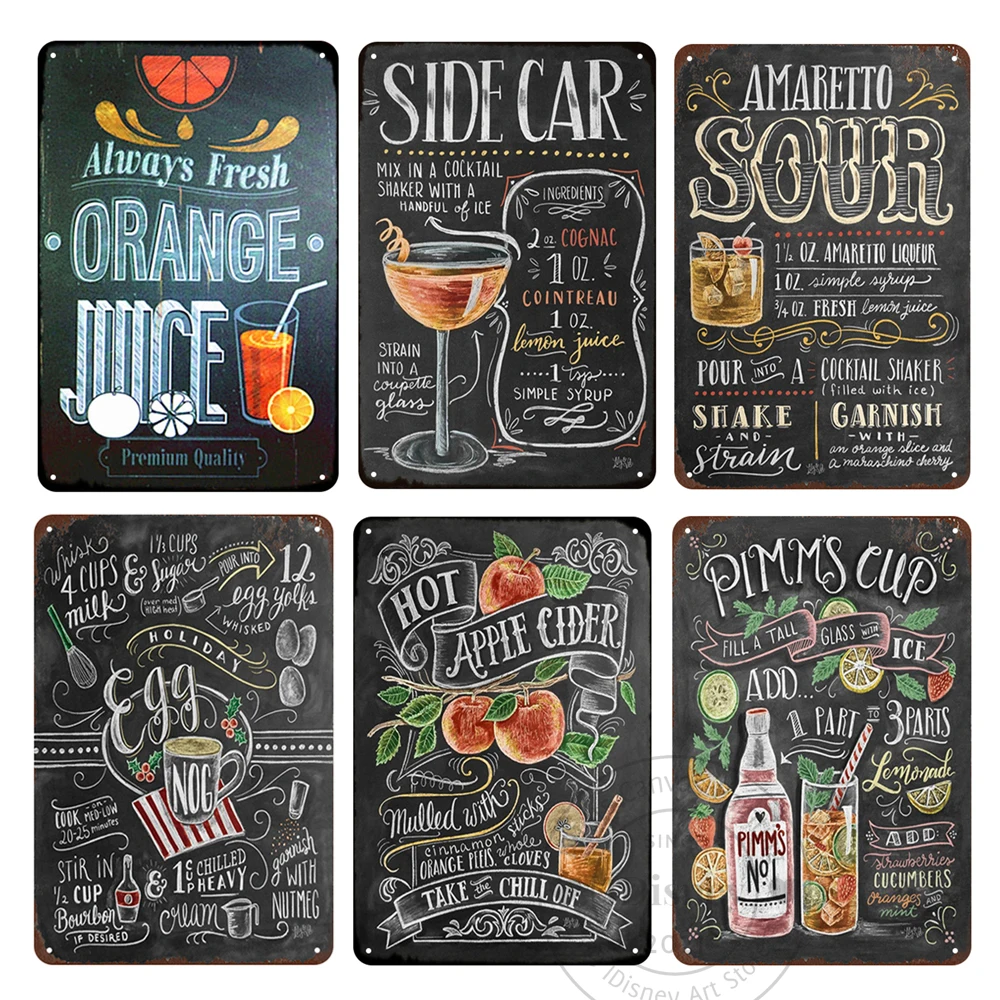 Always Fresh
ORANGE
JUICE
Premium Quality
SIDE CAR
MIX IN A COCKTAIL
SHAKER WITH A
HANDFUL of ICE
INGREDIENTS
2 oz. COGNAC
1 OZ.
COINTREAU
1 OZ.
lemon juice
1 tsp.
SIMPLE SYRUP
STRAIN
INTO a
coupette
glass
AMARETTO
SOUR
1 1/2 OZ. AMARETTO LIQUEUR
1 OZ. simple syrup
3/4 OZ. FRESH lemon juice
POUR INTO A COCKTAIL SHAKER
(filled with ice)
SHAKE
-AND-
strain
GARNISH
-WITH-
an orange slice and
a maraschino cherry
Whisk
4 CUPS
milk
&
1 1/3 CUPS
Sugar
(over med
HIGH heat)
POUR INTO
12
egg yolks
WHISKED
HOLIDAY
Egg
NOG
COOK -on- MED-LOW
20-25 minutes
STIR IN
1/2 CUP
Bourbon
IF DESIRED
&
1 CUP CHILLED
HEAVY
cream
garnish
WITH
NUTMEG
HOT
APPLE CIDER
Mulled with
cinnamon sticks
ORANGE PEELS, whole
CLOVES
TAKE the CHILL OFF
PIMM'S CUP
FILL A TALL GLASS WITH ICE
ADD...
1 PART TO 3 PARTS
Lemonade
PIMM'S
No. 1
ADD:
strawberries
CUCUMBERS
oranges AND
mint
IDisney Art Store